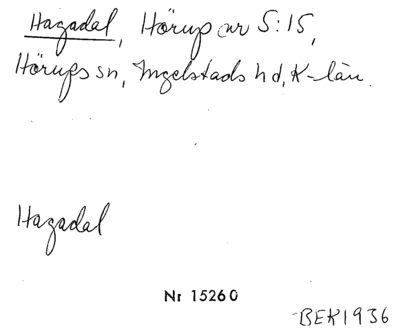 Hagadal, Hörup nr 5:15,
Hörups sn, Ingelstads hd, K-län.
Hagadal
Nr 15260
BEK1936